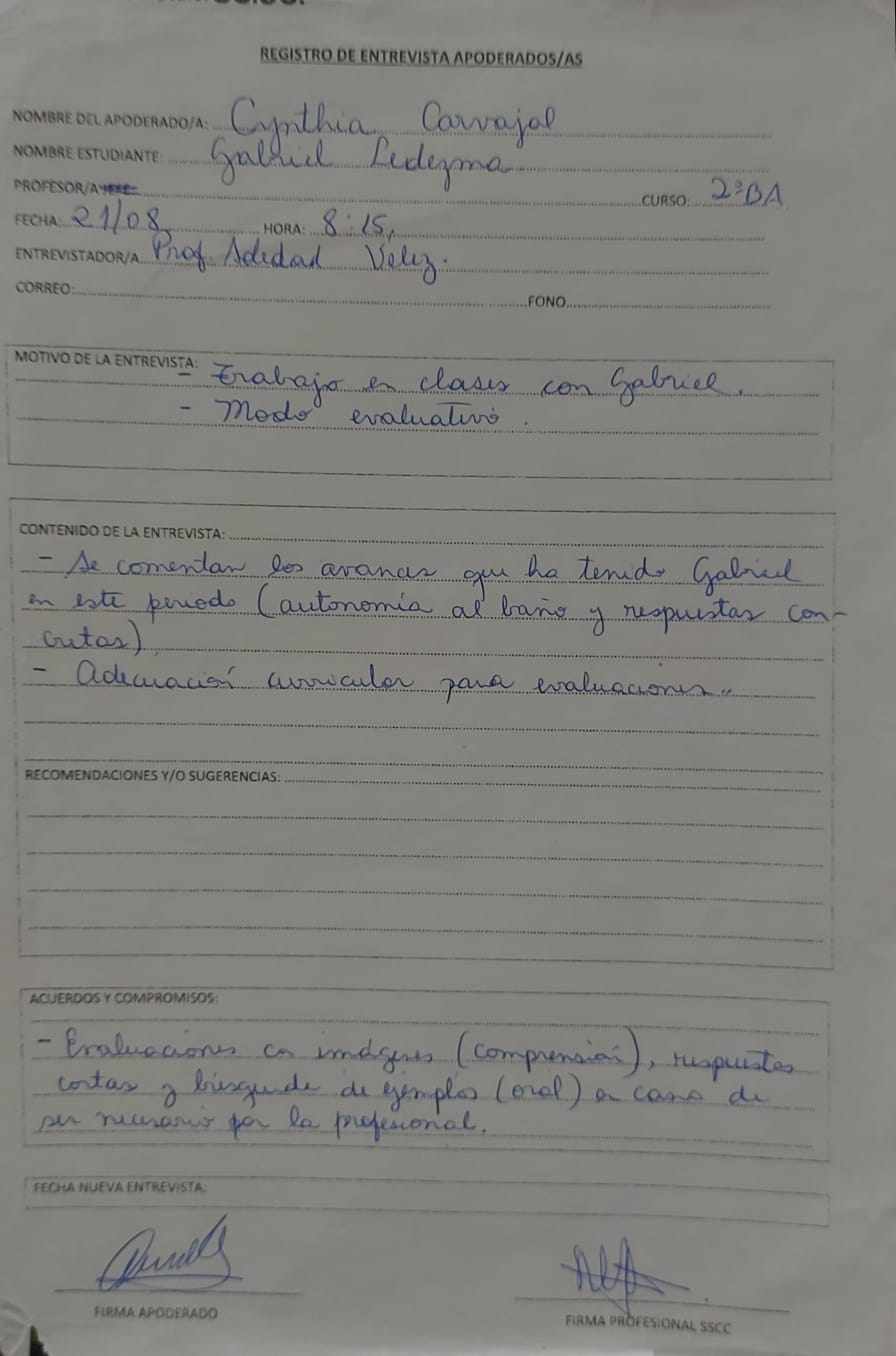 REGISTRO DE ENTREVISTA APODERADOS/AS
NOMBRE DEL APODERADO/A: Cynthia Carvajal
NOMBRE ESTUDIANTE: Gabriel Ledezma
PROFESOR/A CURSO: 2°BA
FECHA: 21/08, HORA: 8:15,
ENTREVISTADOR/A Prof Soledad Veliz.
CORREO: FONO
MOTIVO DE LA ENTREVISTA:
- Trabajo en clases con Gabriel.
- Modo evaluativo.
CONTENIDO DE LA ENTREVISTA:
- Se comentan los avances que ha tenido Gabriel
en este periodo (autonomía al baño y respuestas con-
cretas)
- Adecuación curricular para evaluaciones.
RECOMENDACIONES Y/O SUGERENCIAS:
ACUERDOS Y COMPROMISOS:
- Evaluaciones con imágenes (comprensión), respuestas
cortas y búsqueda de ejemplos (oral) en caso de
ser necesario por la profesional.
FECHA NUEVA ENTREVISTA:
FIRMA APODERADO
FIRMA PROFESIONAL SSCC